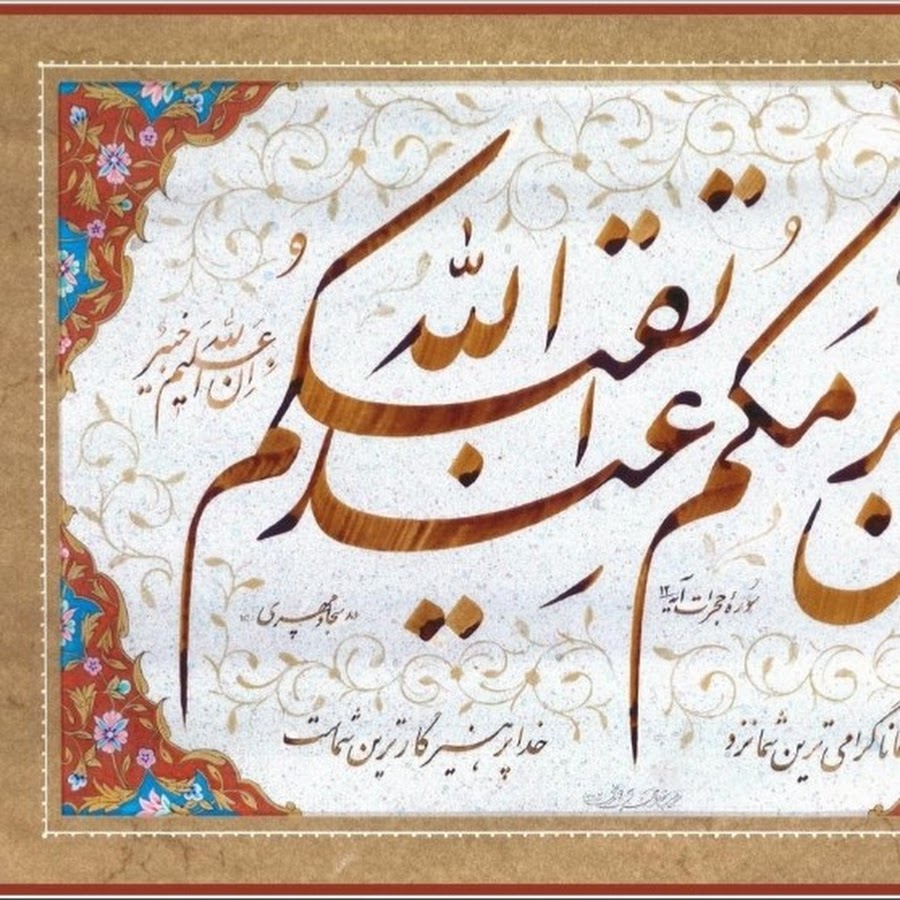 ن رمکم عند الله اتقیکم
ان الله علیم خبیر
سورهٔ حجرات آیه ۱۲
مانا گرامی ترین شما نزد خدا پرهیزگارترین شماست